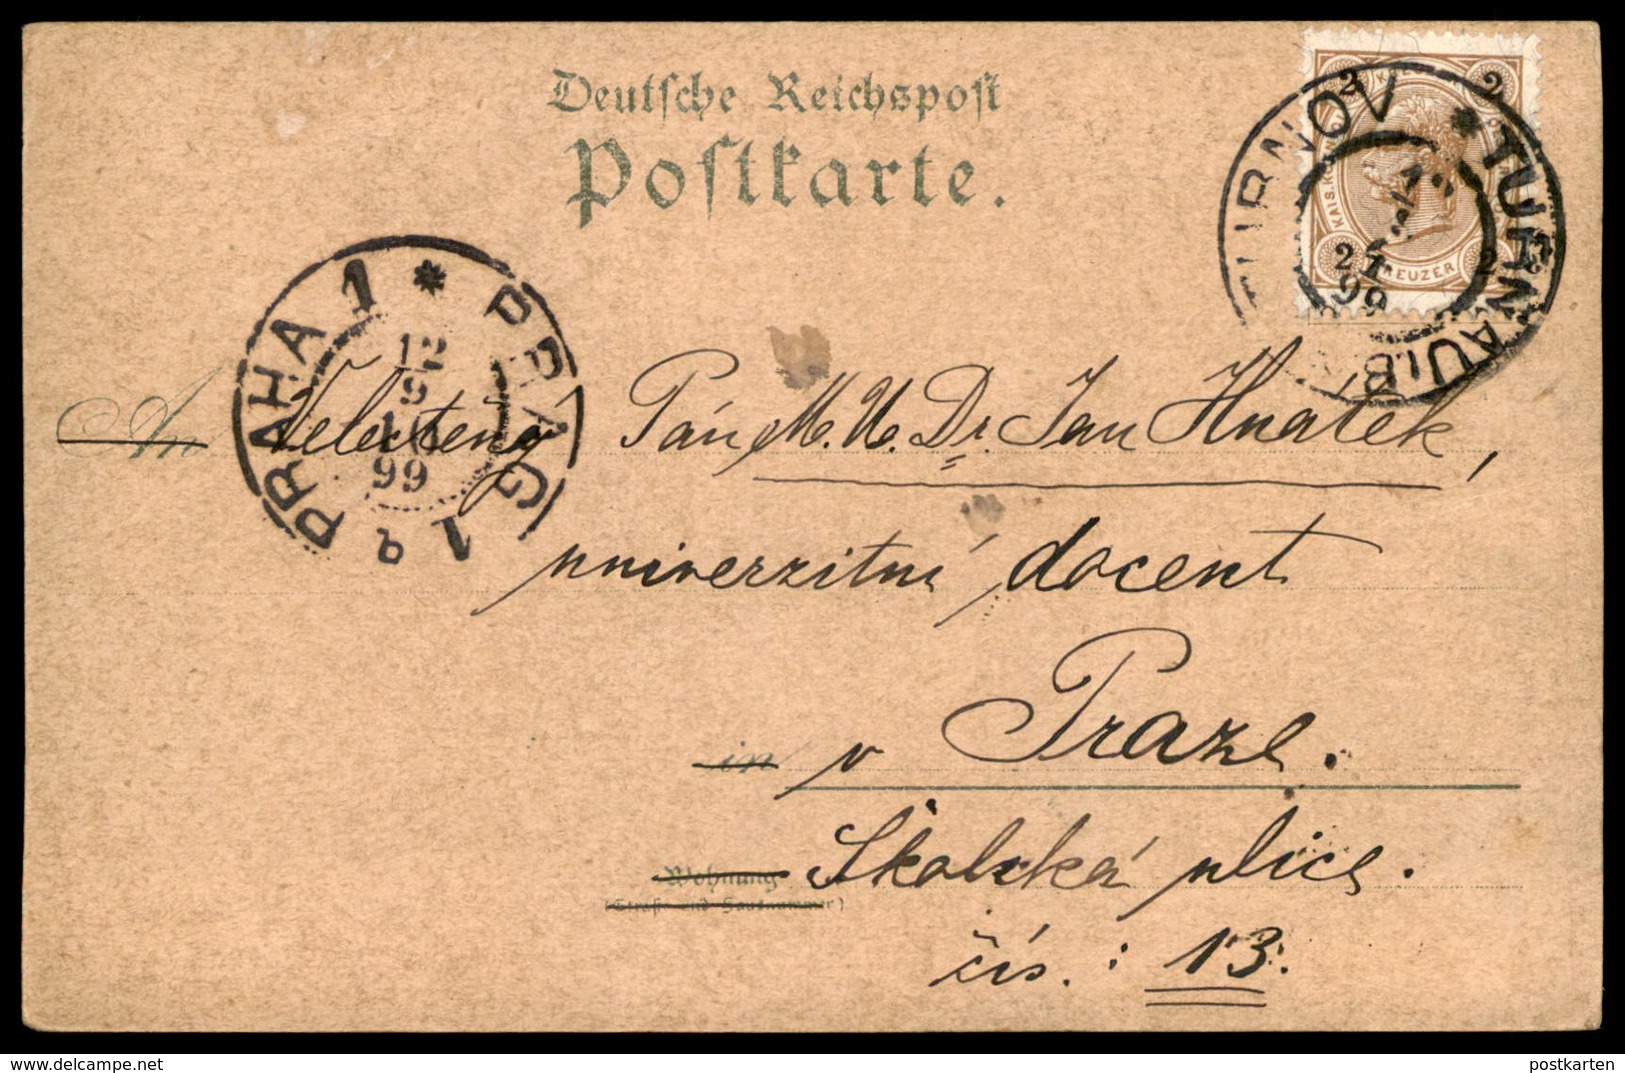 Deutsche Reichspost
Postkarte.
TURNOV * TURNAU
99
2 2
2 2
KREUZER
PRAHA 1 * PRAG 1
12
9
10
99
An Velectený Pán M. U. Dr. Jan Hnátek,
univerzitní docent
in v Praze.
Wohnung Školská ulice.
(Straße und Hausnummer)
čís. : 13.
www.delcampe.net
postkarten